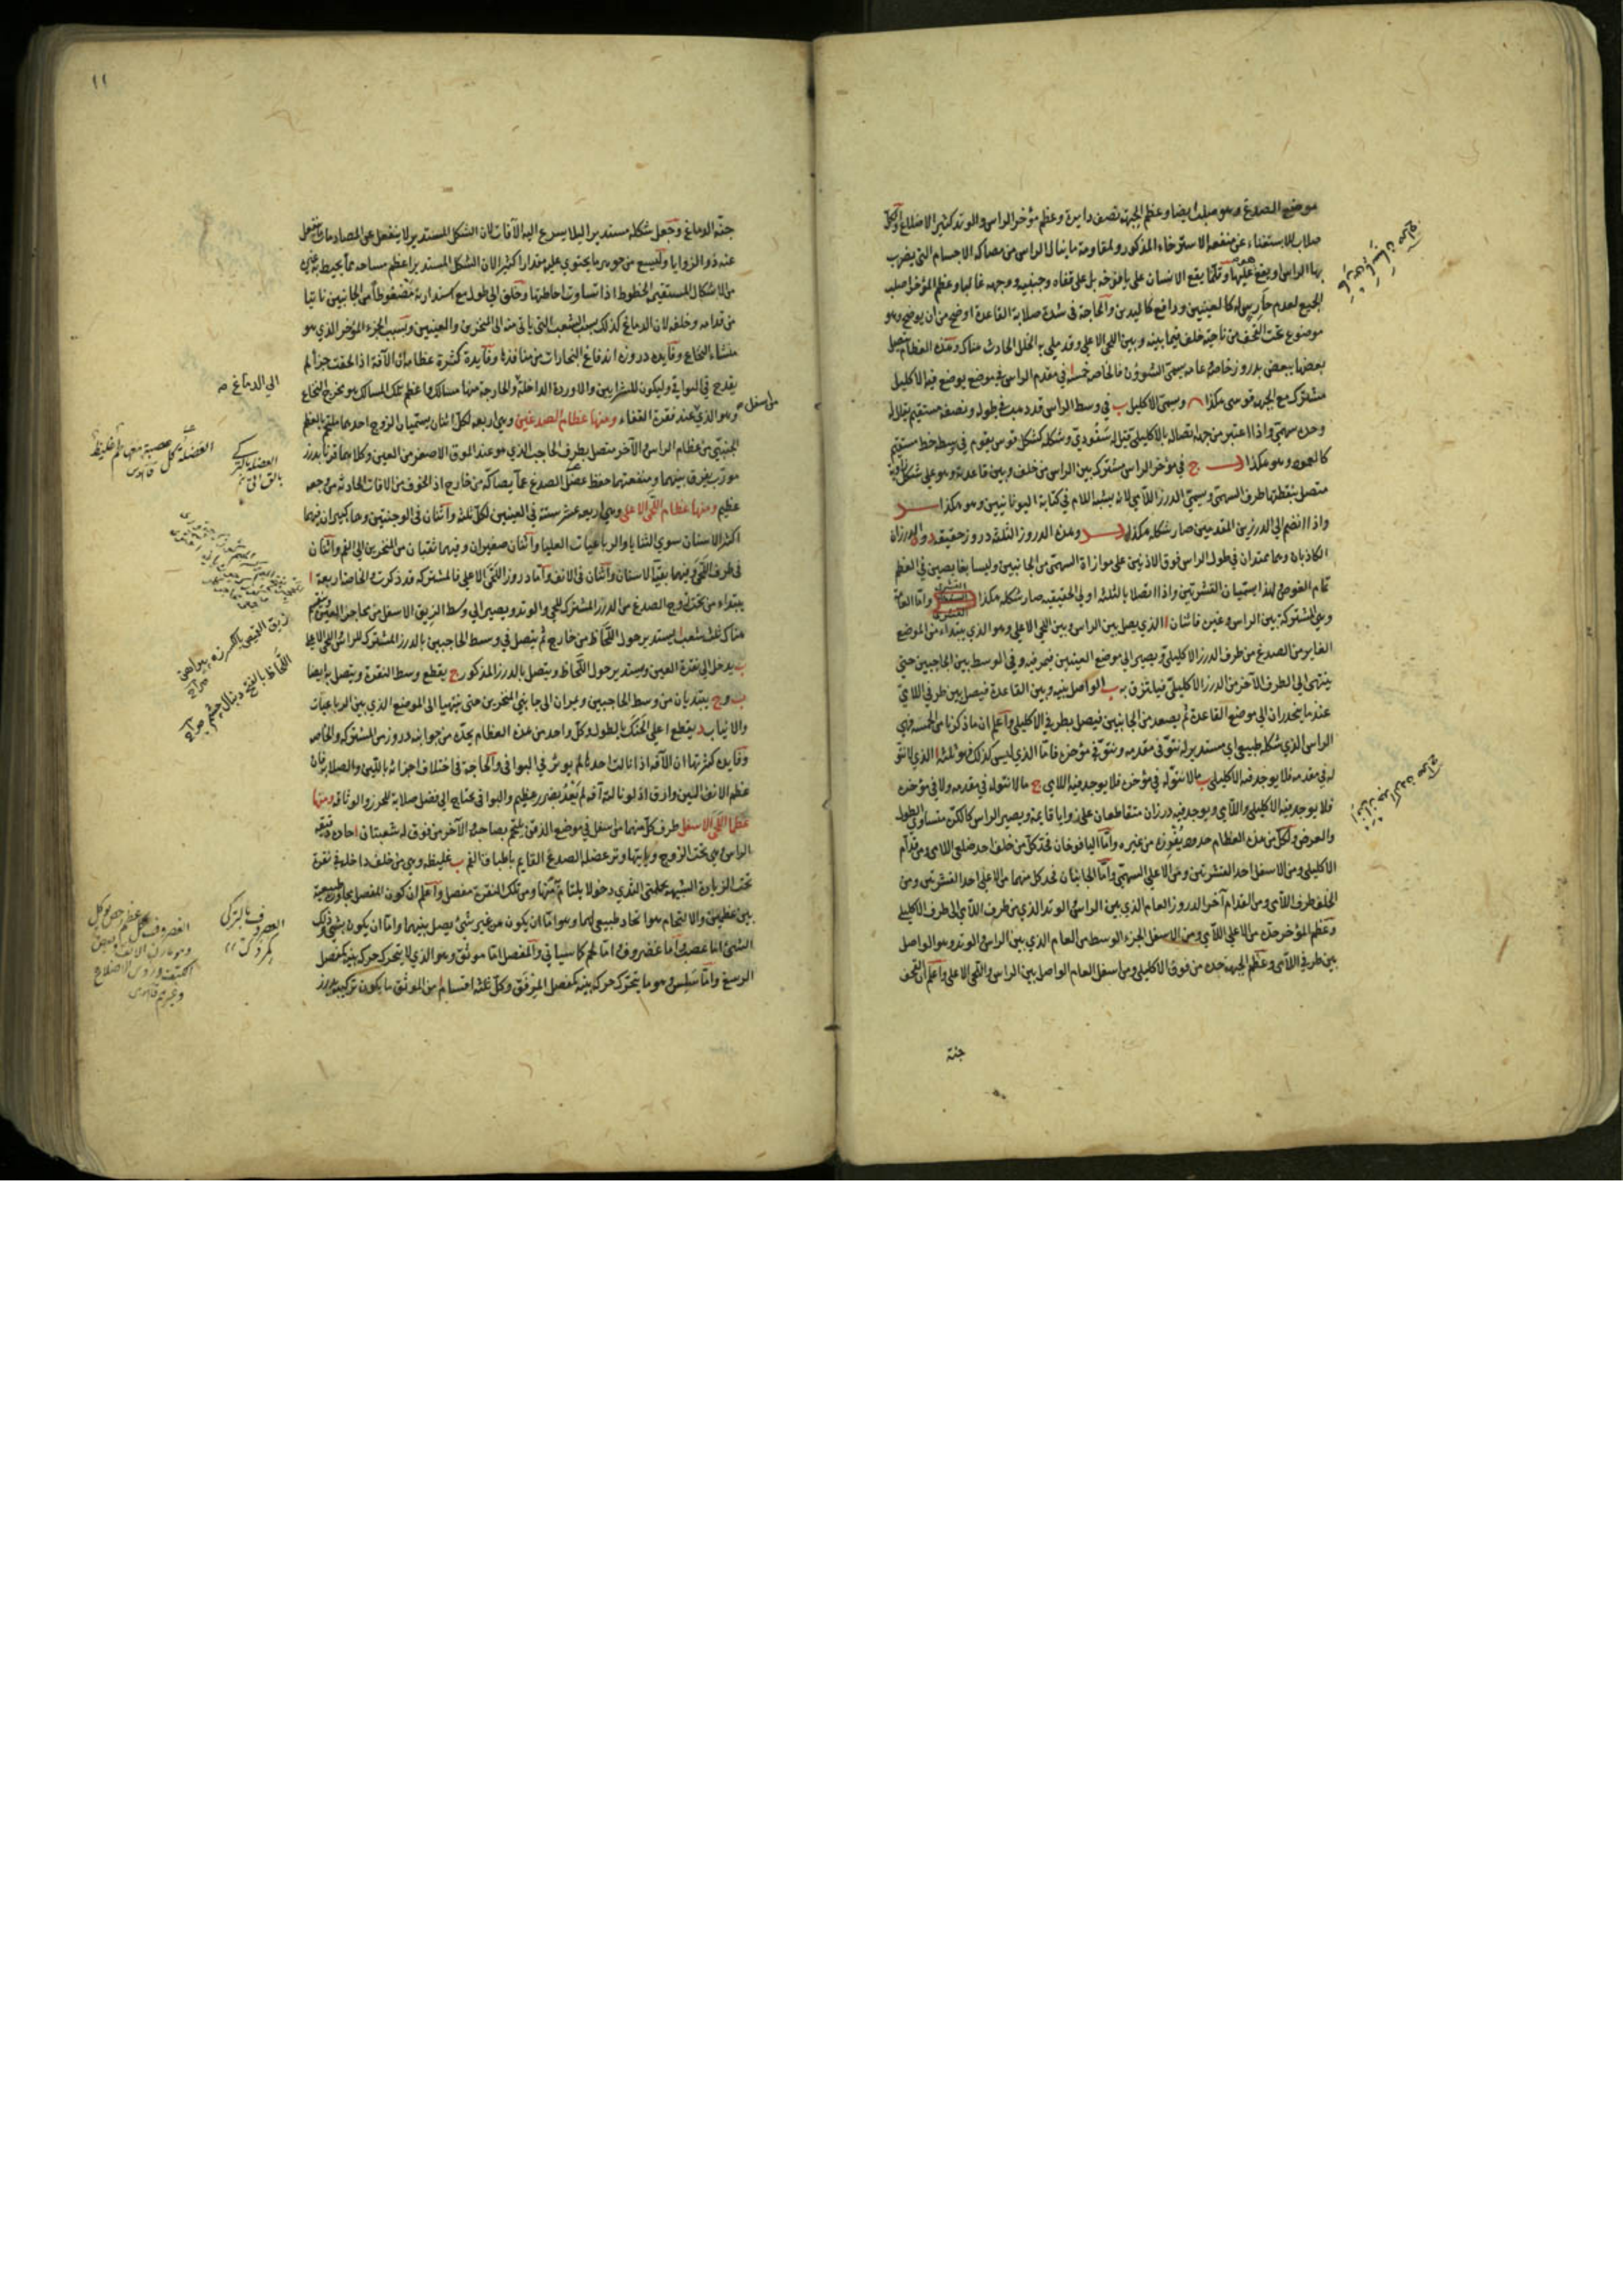 موضع الصدغ وهو صلب ايضا وعظم الجبهة نصف دايرة وعظم مؤخر الراس والوتد كثير الاضلاع وكل
صلاب للاستغناء عن منفعة الاسترخاء المذكور ولمقاومة ما ينال الراس من مصاكة الاجسام التي يضرب
بها الراس او يقع عليها وقلما يقع الانسان على يافوخه بل على قفاه وجنبيه ووجهه غالبا وعظم المؤخر اصلب
الجميع لعدم حارس له كالعينين ودافع كاليدين والحاجة في شدة صلابة القاعدة اوضح من ان يوضح وهو
موضوع تحت القحف من ناحية خلف فيما بينه وبين اللحى الاعلى وقد ملى به الخلل الحادث هناك وهذه العظام يتصل
بعضها ببعض بدروز خاصة عامة يسمى الشوؤن فالخاصة خمسة ا في مقدم الراس في موضع يوضع فيه الاكليل
مشترك مع الجبهة قوسى هكذا ويسمى الاكليلي ب في وسط الراس قدد هب في طوله ونصفه مستقيم يقال له
وحده سهمى واذا اعتبر من جهة اتصاله بالاكليلى قيل له سفودى وشكله كشكل قوس يقوم في وسطه خط مستقيم
كالعمود وهو هكذا ج في مؤخر الراس مشترك بين الراس من خلف وبين قاعدته وهو على شكل زاوية
متصل بنقطتها طرف السهمى ويسمى الدرز اللامى لانه يشبه اللام في كتابة اليونانيين وهو هكذا
واذا انضم الى الدرزين المقدمين صار شكله هكذا وهذه الدروز الثلثة دروز حقيقة د و ه الدرزان
الكاذبان وهما ممتدان في طول الراس فوق الاذنين على موازاة السهمى من الجانبين وليسا بغايصين في العظم
تمام الغوص لهذا يسميان القشريين واذا اتصلا بالثلثة اولى الحقيقية صار شكله هكذا واما العامة
وهي المشتركة بين الراس وغيره فاثنان ا الذي يصل بين الراس وبين اللحى الاعلى وهو الذي يبتداء من الموضع
الغاير من الصدغ من طرف الدرز الاكليلى ويصير الى موضع العينين فيمر فيه وفي الوسط بين الحاجبين حتى
ينتهى الى الطرف الآخر من الدرز الاكليلى فيلتزق به ب الواصل بينه وبين القاعدة فيصل بين طرفي اللامى
عند ما ينحدران الى موضع القاعدة ثم يصعد من الجانبين فيصل بطرفي الاكليلى واعلم ان ما ذكرنا من الخمسة فهي
الراس الذي شكله طبيعي اي مستدير له نتؤ في مقدمه ونتؤ في مؤخره فاما الذي ليس كذلك فهو ثلثة ا الذي لا نتؤ
له في مقدمه فلا يوجد فيه الاكليلى ب ما لا نتؤ له في مؤخره فلا يوجد فيه اللامى ج ما لا نتؤ له في مقدمه ولا في مؤخره
فلا يوجد فيه الاكليلى واللامى ويوجد فيه درزان متقاطعان على زوايا قايمة ويصير الراس كالكرة متساوى الطول
والعرض ولكل من هذه العظام حدود يفرزه من غيره واما اليافوخان فحد كل من خلف احد ضلعى اللامى ومن قدام
الاكليلى ومن الاسفل احد القشريين ومن الاعلى السهمى واما الجانبان فحد كل منهما من الاعلى احد القشريين ومن
الخلف طرف اللامى ومن القدام آخر الدروز العام الذي بين الراس والوتد الذي من طرف اللامى الى طرف الاكليلى
وعظم المؤخر حده من الاعلى اللامى ومن الاسفل الجزء الوسط من العام الذي بين الراس والوتد وهو الواصل
بين طرفي اللامى وعظم الجبهة حده من فوق الاكليلى ومن اسفل العام الواصل بين الراس واللحى الاعلى واعلم ان القحف
جنة
١١
جنة الدماغ وجعل شكله مستديرا ليلا يسرع اليه الآفات لان الشكل المستدير لا ينفعل عن المصادمات ما ينفعل
عنه ذو الزوايا وليسع من جوهره ما يحتوي عليه مقدارا كثيرا لان الشكل المستدير اعظم مساحة مما يحيط به غيره
من الاشكال المستقيمة الخطوط اذا تساوت احاطتها وخلق الى طول مع استدارته مضغوطا من الجانبين ناتيا
من قدامه وخلفه لان الدماغ كذلك بسبب الشعب التي ياتى منه الى المنخرين والعينين وبسبب الجزء المؤخر الذي هو
منشاء النخاع وفايدة دروزه اندفاع البخارات من منافذها وفايدة كثرة عظامه ان الآفة اذا لحقت جزأ لم
يقدح في البواقي وليكون للشرايين والاوردة الداخلة والخارجة منها مسالك واعظم تلك المسالك هو مخرج النخاع
وهو الذي عند نقرة القفاء ومنها عظام الصدغين وهي اربعة لكل اثنان يسميان الزوج احدهما ملتحم بالعظم
الجنبى من عظام الراس والآخر متصل بطرف الحاجب الذي هو عند الموق الاصغر من العين وكلاهما قرنا بدرز
مورب يفرق بينهما ومنفعتهما حفظ عضل الصدغ عما يصاكه من خارج اذ الخوف من الآفات الحادثة من جهه
عظيم ومنها عظام اللحى الاعلى وهي اربعة عشر ستة في العينين لكل ثلثة واثنان في الوجنتين وهما كبيران فيهما
اكثر الاسنان سوى الثنايا والرباعيات العليا واثنان صغيران وفيهما ثقبتان من المنخرين الى الفم واثنان
في طرف اللحى وفيهما بقية الاسنان واثنان في الانف واما دروز اللحى الاعلى فالمشتركة قد ذكرت والخاصة اربعة ا
يبتداء من تحت زوج الصدغ من الدرز المشترك للحى والوتد ويصير الى وسط الزيق الاسفل من محاجر العين وينقسم
هناك ثلث شعب ا يستدير حول اللحاظ من خارج ثم يتصل في وسط الحاجبين بالدرز المشترك للراس واللحى الاعلى
ب يدخل الى نقرة العين ويستدير حول اللحاظ ويتصل بالدرز المذكور ج يقطع وسط النقرة ويتصل به ايضا
ب و ج يبتديان من وسط الحاجبين ويمران الى جانبي المنخرين حتى ينتهيا الى الموضع الذي بين الرباعيات
والانياب د يقطع اعلى الحنك بالطول وكل واحد من هذه العظام يحده من جوانبه دروز من المشتركة والخاصة
وفايدة كثرتها ان الآفة اذا نالت احدها لم يوثر في البواقي والحاجة في اختلاف اجزائه باللين والصلابة فان
عظم الانف الين وارق اذ لو نالته آفة لم تعد بضرر عظيم والبواقي محتاج الى فضل صلابة للحرز والوثاقة ومنها
عظما اللحى الاسفل طرف كل منهما من اسفل في موضع الذقن يلتحم بصاحبه والآخر من فوق له شعبتان ا حادة دقيقة
الراس وهي تحت الزوج وياتيها وتر عضلة الصدغ القايم باطباق الفم ب غليظة وهي من خلف داخلة في نقرة
تحت الزيادة الشبيهة بحلمتى الثدى دخولا يلتام منها ومن تلك النقرة مفصل واعلم ان كون المفصل مجاورة طبيعية
بين عظمين والالتحام هو اتحاد طبيعي لهما وهو اما ان يكون من غير شئ يصل بينهما واما ان يكون بشئ وذلك
الشئ اما عصب واما غضروف واما لحم كما سياتى والمفصل اما موثق وهو الذي لا يتحرك حركة بينة كمفصل
الرسغ واما سلس وهو ما يتحرك حركة بينة كمفصل المرفق وكل ثلثة اقسام ا من الموثق ما يكون تركيبه بدرز
الى الدماغ صح
من اسفل
العضلة كل عصبة معها لحم غليظ
قاموس
زيق القميص بالكسر زه پيراهن
صراح
اللحاظ بالفتح دنبال چشم صراح
الغضروف بالتركى
كمردك
الغضروف كل عظم رخص يوكل
وهو مارن الانف
الكتف وروس الاضلاع
وغيرهم قاموس